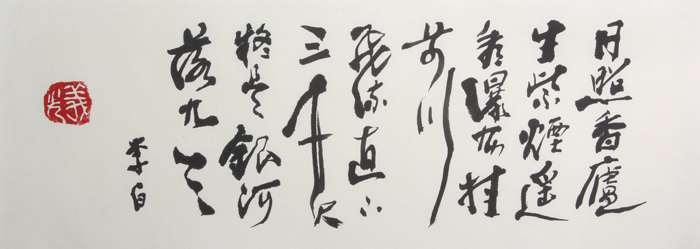 日照香廬
生紫煙遥
看瀑布挂
前川
飛流直下
三千尺
疑是銀河
落九天
李白